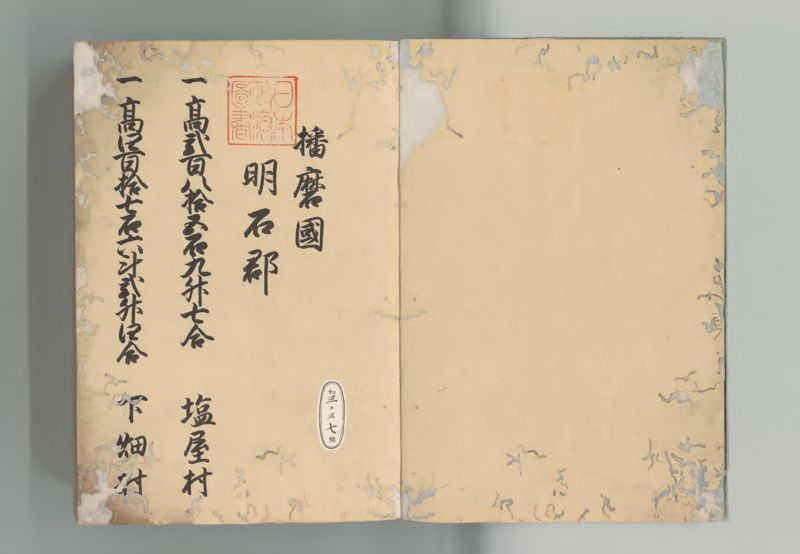 播磨國
明石郡
一高弐百八拾五石九舛七合 塩屋村
一高四百拾七石六斗弐舛四合 下畑村
日本
政府
圖書